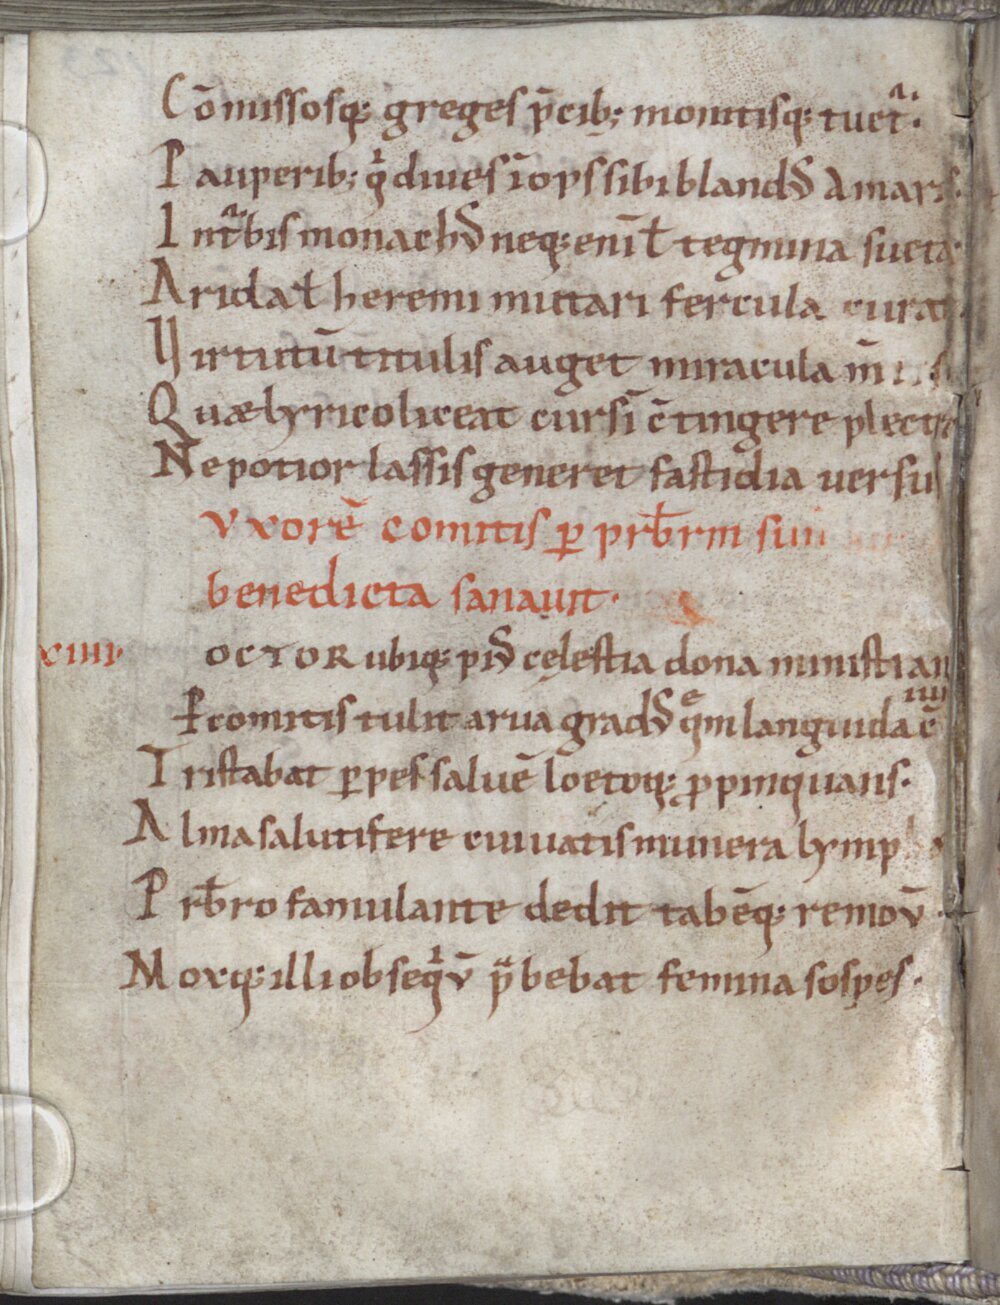 Cōmissosq; greges p̄cib; monitisq; tuet᷑.
Pauperib; qͥ diues īops sibi blandꝰ Amaris.
Int᷑ bis monachꝰ neq; enīt tegmina sueta
Aridat heremi mutari fercula curat.
Virtutū titulis auget miracula m̄
Quæ lyrico liceat cursī c̄tingere plectro
Ne potior lassis generet fastidia uersus
Vxorē comitis ꝑ prƀrm sui
benedicta sanauit.
xiiii. OCTOR ubiq; piꝰ cęlestia dona ministrans
P̱comitis tulit arua gradꝰ qͣm languida c̄iux
Tristabat ꝑpes saluē loetoq; ꝓpinquans.
Alma salutifere ciuuatis munera lymphæ
Prƀro famulante dedit tabēq; remoū.
Moxq; illi obseqͥū p̄bebat femina sospes.